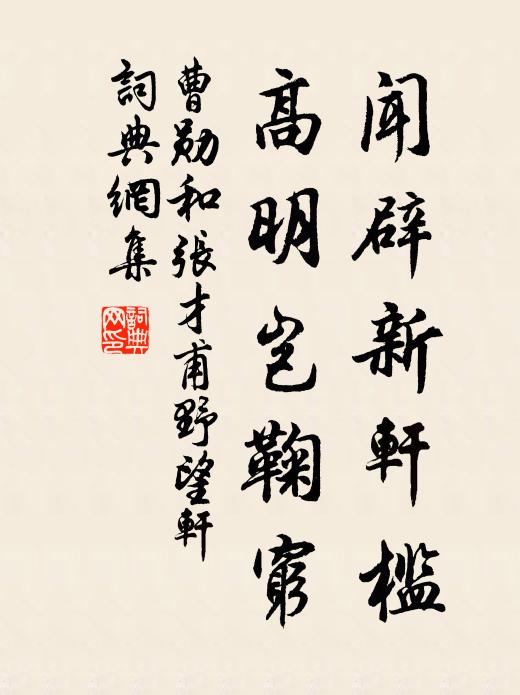 聞辟新軒檻
高明豈鞠窮
曹勛和張才甫野望軒
詞典網集
詞典網印